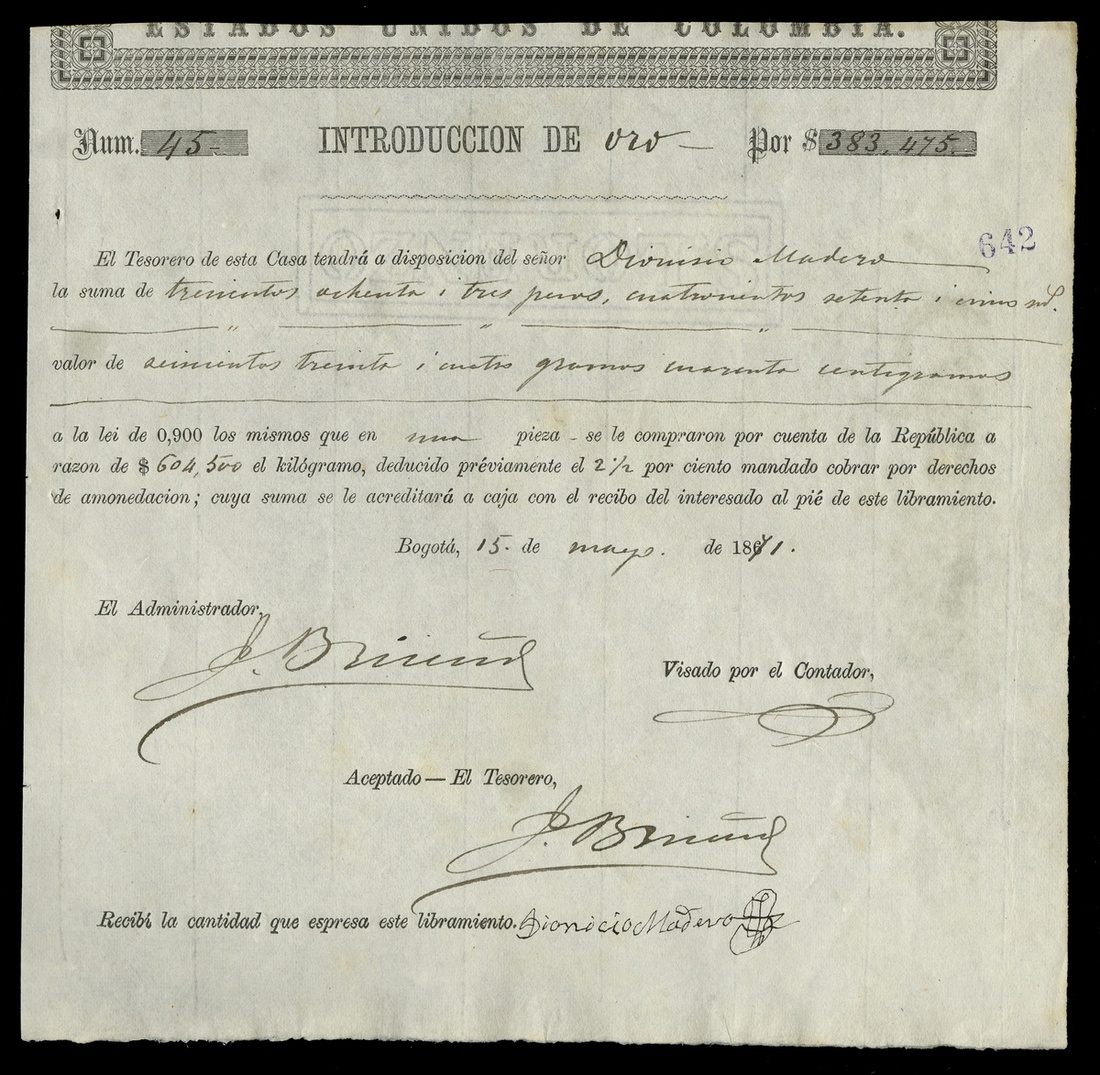 ESTADOS UNIDOS DE COLOMBIA.
Num. 45- INTRODUCCION DE oro — Por $ 383,475.
642
El Tesorero de esta Casa tendrá a disposicion del señor Dionisio Madero
la suma de trecientos ochenta i tres pesos, cuatrocientos setenta i cinco mil.
valor de seiscientos treinta i cuatro gramos cuarenta centigramos
a la lei de 0,900 los mismos que en una pieza - se le compraron por cuenta de la República a
razon de $ 604,500 el kilógramo, deducido préviamente el 2½ por ciento mandado cobrar por derechos
de amonedacion; cuya suma se le acreditará a caja con el recibo del interesado al pié de este libramiento.
Bogotá, 15. de mayo. de 1871.
El Administrador,
Visado por el Contador,
Aceptado — El Tesorero,
Recibí la cantidad que espresa este libramiento. Dionicio Madero